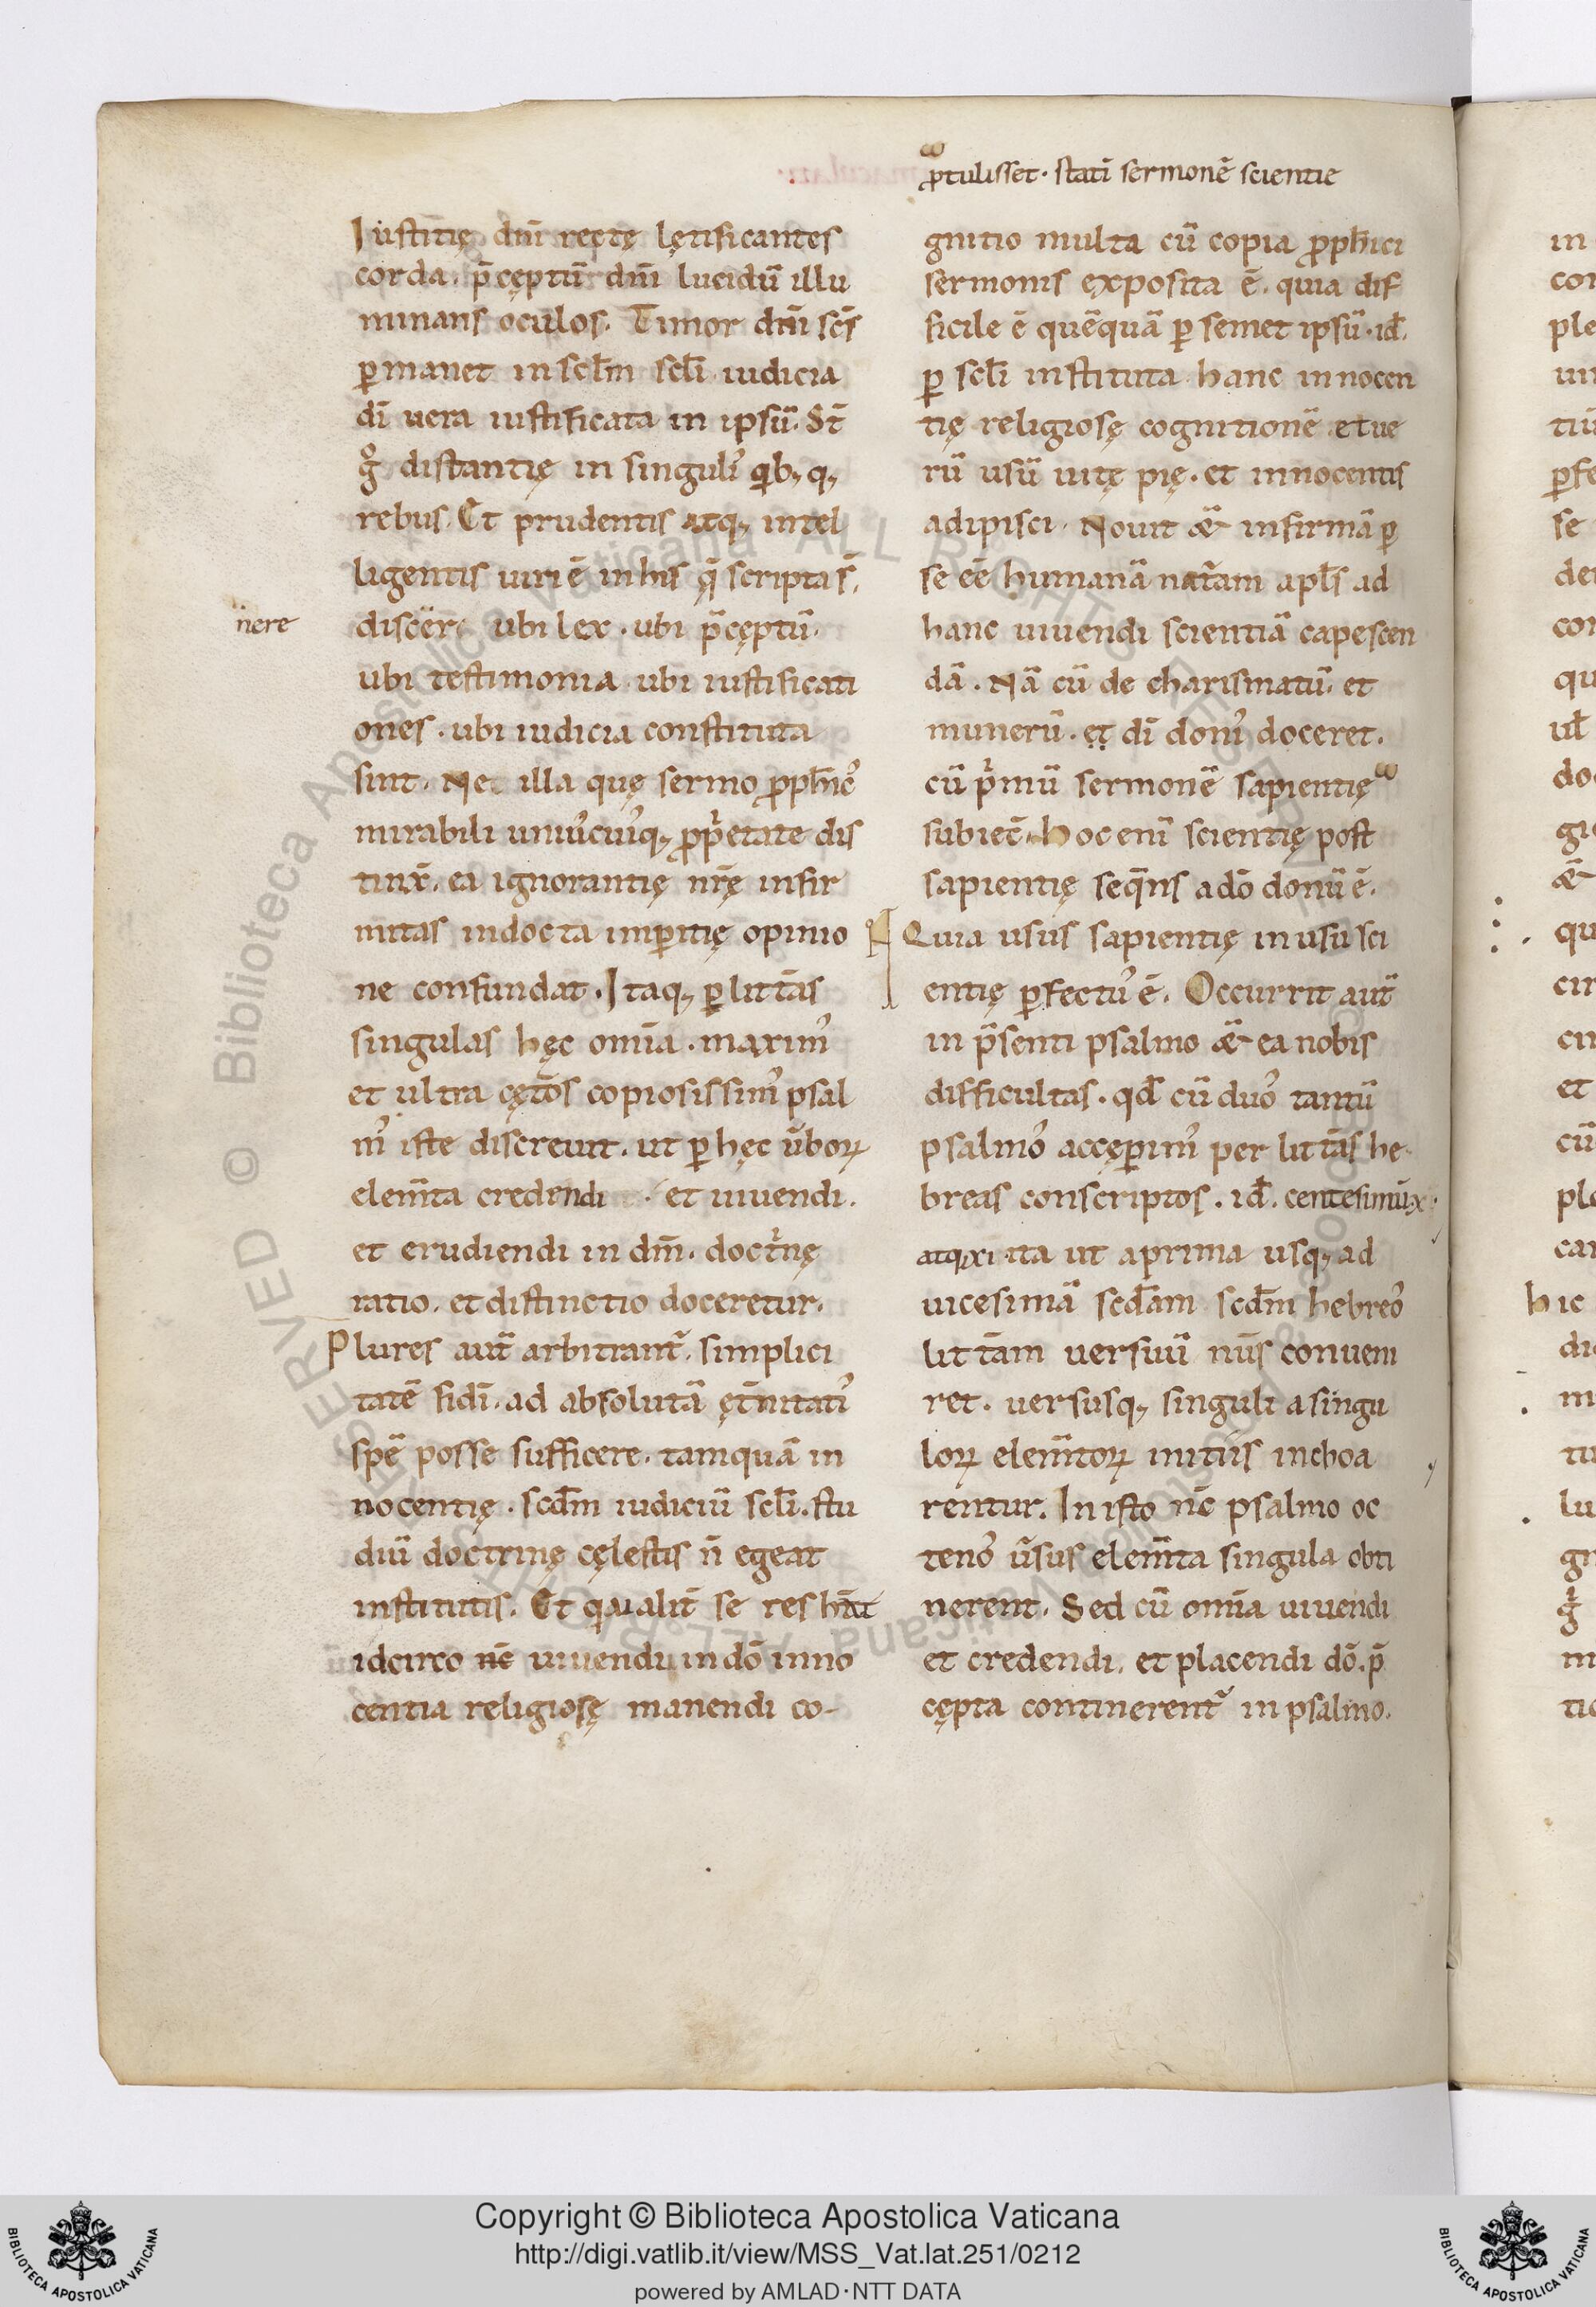 ꝓtulisset · statī sermonē scientie
Iustitię dn̄i rectę lętificantes
corda. p̄cęptū dn̄i lucidū illu
minans oculos. Timor dn̄i sc̄s
ꝑmanet in sclm̄ scl̄i iudicia
dī uera iustificata in ipsū. St̄
g̊ distantię in singulꝰ qib; q;
rebus. Et prudentis atq; intel
ligentis uiri ē in his q̄ scripta s̄.
nere
discer ubi lex · ubi p̄cęptū.
ubi testimonia · ubi iustificati
ones · ubi iudicia constituta
sint. Ne illa quę sermo ꝓph̄icꝰ
mirabili uniꝰcuiꝰq; ꝓpͥetate dis
tinx̄. ea ignorantię nr̄ę infir
mitas indocta imꝑitię opinio
ne confundat. Itaq; ꝑ litt̄as
singulas hęc om̄ia · maximꝰ
et ultra cęt̄os copiosissimꝰ psal
mꝰ iste discreuit. ut ꝑ hęc ūboꝝ
elem̄ta credendi · et uiuendi.
et erudiendi in dm̄. doctͥnę
ratio. et distinctio doceretur.
Plures aut̄ arbitrant᷑. simplici
tatē fidī. ad absolutā ęt̄nitatꝰ
spē posse sufficere. tamquā in
nocentię · scd̄m iudiciū scl̄i. stu
diū doctrinę cęlestis n̄ egeat
institutis. Et qualit̄ se res h̄at
idcirco nc̄ uiuendi in dō inno
centia religiosę manendi co-
gnitio multa cū copia ꝓph̄ici
sermonis exposita ē. quia dif
ficile ē quēquā ꝑ semet ipsū · id̄.
ꝑ scl̄i instituta hanc innocen
tię religiosę cognitionē et ue
rū usū uitę pię · et innocentis
adipisci. Nouit &̄ infirmā ꝑ
se eē humanā nat̄am apl̄s ad
hanc uiuendi scientiā capescen
dā. Nā cū de charismatū. et
munerū. et dī donꝰ doceret.
cū pͥmū sermonē sapientię
subiec̄. Hoc eni scientię post
sapientię seq̄ns a dō donū ē.
Quia usus sapientię in usu sci
entię ꝑfectꝰ ē. Occurrit aut̄
in p̄senti psalmo &̄ ea nobis
difficultas · qd̄ cū duoꝰ tantū
psalmoꝰ accęꝑimꝰ per litt̄as he
breas conscriptos. id̄. centesimū.x.
atq; xi ita ut a prima usq; ad
uicesimā scd̄am scd̄m hebreoꝰ
litt̄am uersuū nūs conueni
ret. uersusq; singuli a singu
loꝝ elem̄toꝝ initiis inchoa
rentur. In isto nc̄ psalmo oc
tenoꝰ ūsus elem̄ta singula obti
nerent. Sed cū om̄ia uiuendi
et credendi. et placendi dō. p̄
cępta continerent᷑ in psalmo.
in
con
ple
tiū
ꝑfe
se
con
qu
ul̄
doc
&̄
qu
cir
et
cū
car
hic
lu
Copyright © Biblioteca Apostolica Vaticana
http://digi.vatlib.it/view/MSS_Vat.lat.251/0212
powered by AMLAD·NTT DATA
BIBLIOTECA APOSTOLICA VATICANA
BIBLIOTECA APOSTOLICA VATICANA